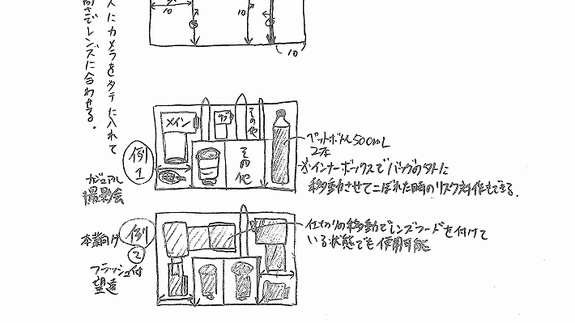 スにカメラをタテに入れて
高さでレンズに合わせる。
10
10
10
例1
カジュアル
撮影会
メイン
サブ
その他
その他
ペットボトル500mL
2本
※インナーボックスでバッグの外に
移動させてこぼれた時のリスク対作もできる。
例2
本番向け
フラッシュ付
望遠
仕切りの移動でレンズフードを付けて
いる状態でも使用可能